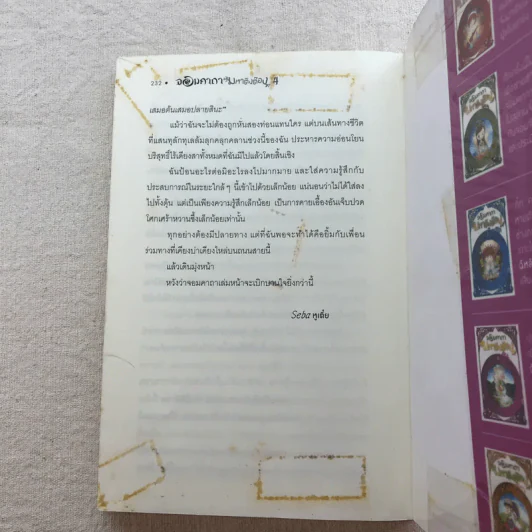 232 • จอมคาถา
เสมอต้นเสมอปลายสินะ"
แม้ว่าฉันจะไม่ต้องถูกหั่นสองท่อนแทนใคร แต่บนเส้นทางชีวิต
ที่แสนทุลักทุเลล้มลุกคลุกคลานช่วงนี้ของฉัน ประหารความอ่อนโยน
บริสุทธิ์ไร้เดียงสาทั้งหมดที่ฉันมีไปแล้วโดยสิ้นเชิง
ฉันป้อนอะไรต่อมิอะไรลงไปมากมาย และใส่ความรู้สึกกับ
ประสบการณ์ในระยะใกล้ๆ นี้เข้าไปด้วยเล็กน้อย แน่นอนว่าไม่ได้ใส่ลง
ไปทั้งดุ้น แต่เป็นเพียงความรู้สึกเล็กน้อย เป็นการคายเอื้องอันเจ็บปวด
โศกเศร้าหวานซึ้งเล็กน้อยเท่านั้น
ทุกอย่างต้องมีปลายทาง แต่ที่ฉันพอจะทำได้คือยิ้มกับเพื่อน
ร่วมทางที่เคียงบ่าเคียงไหล่บนถนนสายนี้
แล้วเดินมุ่งหน้า
หวังว่าจอมคาถาเล่มหน้าจะเบิกบานใจยิ่งกว่านี้
Seba หูเตี๋ย